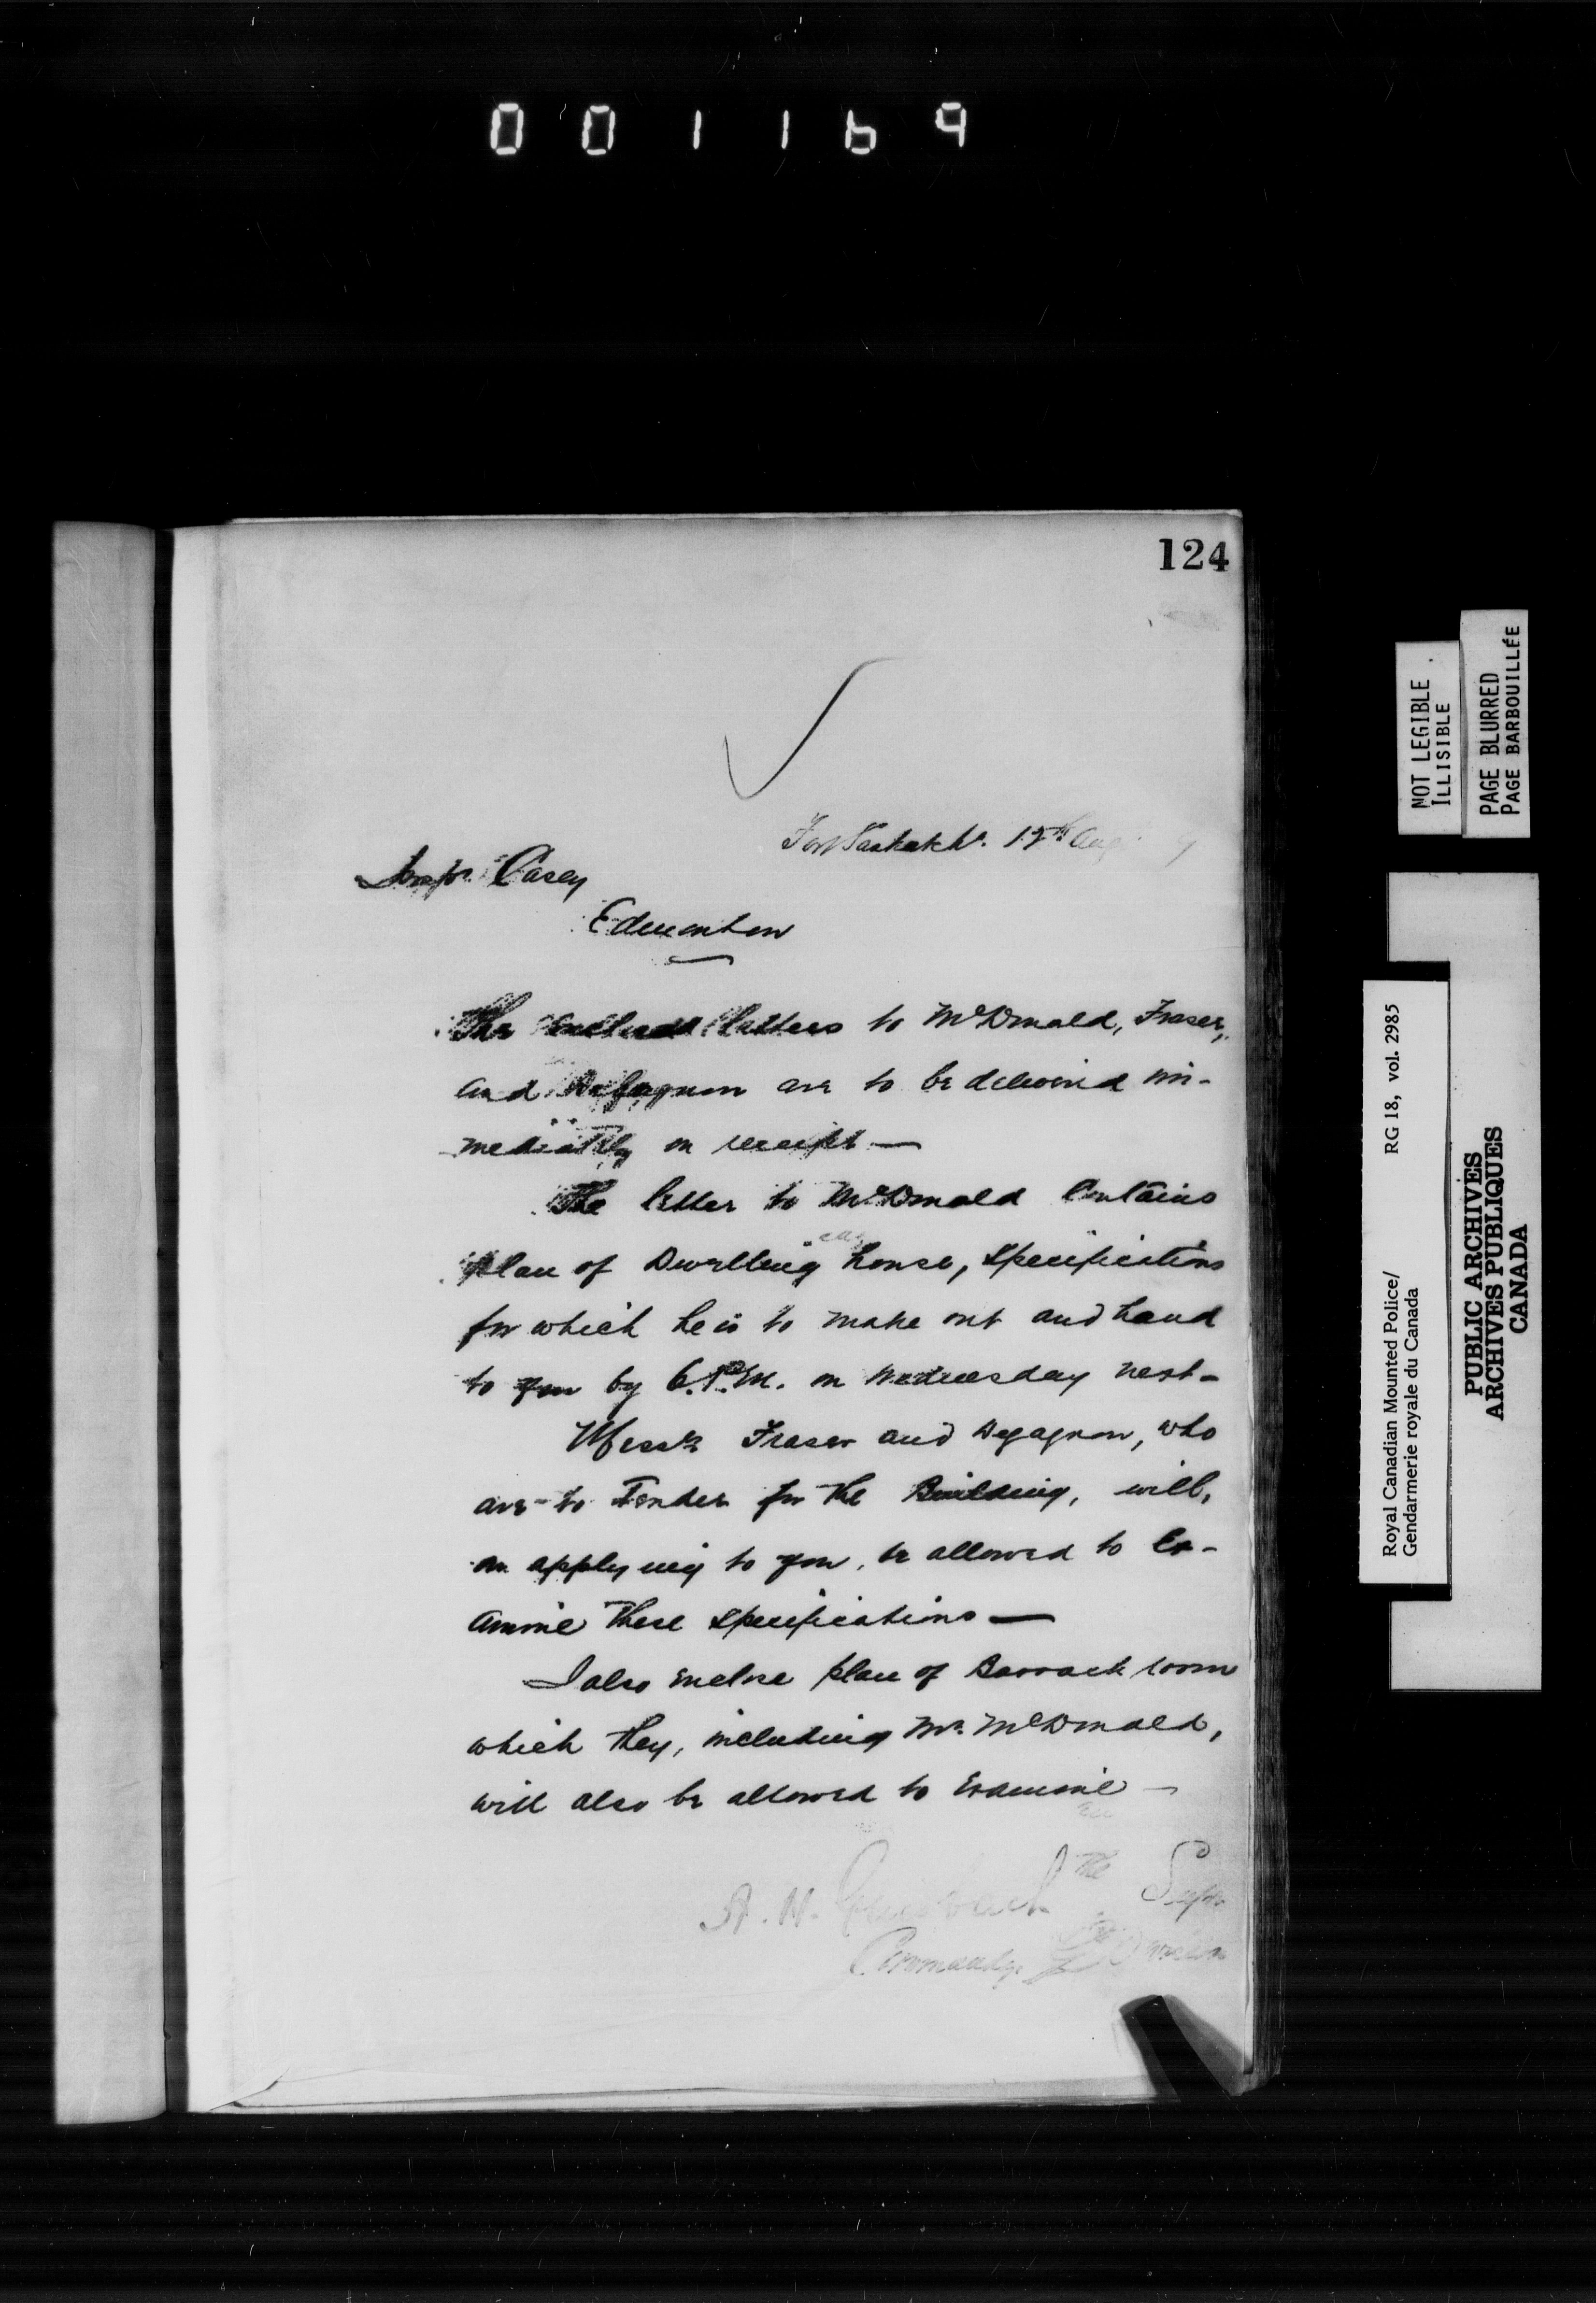 001169
124
Fort Saskatchn. 12th Aug
Inspr. Casey
Edmonton
The enclosed letters to McDonald, Fraser,
and Degagnon are to be delivered im-
mediately on receipt —
The letter to McDonald Contains
plan of Dwelling house, Specifications
for which he is to make out and hand
to you by 6. P.M. on Wednesday next —
Messrs Fraser and Degagnon, who
are to Tender for the Building, will,
on applying to you, be allowed to Ex-
amine these specifications —
I also enclose plan of Barrack room
which they, including Mr. McDonald,
will also be allowed to Examine —
A. H. Griesbach Supt
Commandg. Division
NOT LEGIBLE
ILLISIBLE
PAGE BLURRED
PAGE BARBOUILLÉE
Royal Canadian Mounted Police/ RG 18, vol. 2985
Gendarmerie royale du Canada
PUBLIC ARCHIVES
ARCHIVES PUBLIQUES
CANADA